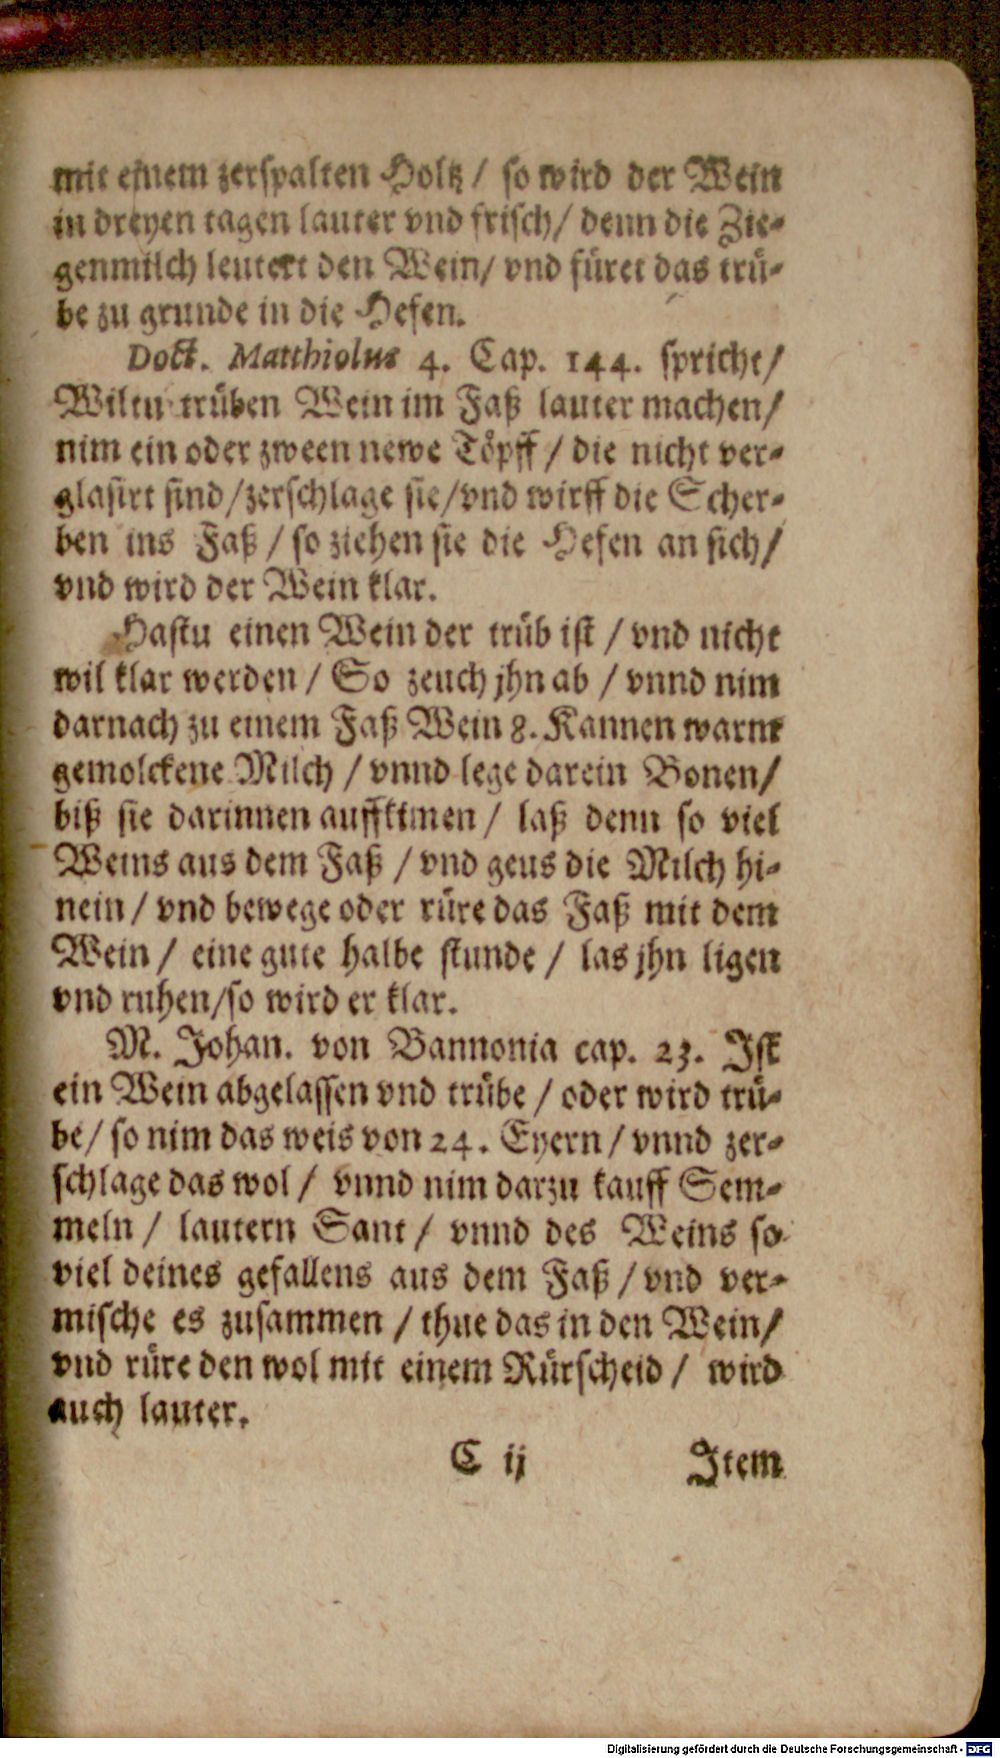 mit einem zerspalten Holtz / so wird der Wein
in dreyen tagen lauter vnd frisch / denn die Zie-
genmilch leutert den Wein / vnd füret das trü-
be zu grunde in die Hefen.
Doct. Matthiolus 4. Cap. 144. spricht /
Wiltu trüben Wein im Faß lauter machen /
nim ein oder zween newe Töpff / die nicht ver-
glasirt sind / zerschlage sie / vnd wirff die Scher-
ben ins Faß / so ziehen sie die Hefen an sich /
vnd wird der Wein klar.
Hastu einen Wein der trüb ist / vnd nicht
wil klar werden / So zeuch jhn ab / vnnd nim
darnach zu einem Faß Wein 8. Kannen warm
gemolckene Milch / vnnd lege darein Bonen /
biß sie darinnen auffkimen / laß denn so viel
Weins aus dem Faß / vnd geus die Milch hi-
nein / vnd bewege oder rüre das Faß mit dem
Wein / eine gute halbe stunde / las jhn ligen
vnd ruhen / so wird er klar.
M. Johan. von Bannonia cap. 23. Ist
ein Wein abgelassen vnd trübe / oder wird trü-
be / so nim das weis von 24. Eyern / vnnd zer-
schlage das wol / vnnd nim darzu kauff Sem-
meln / lautern Sant / vnnd des Weins so
viel deines gefallens aus dem Faß / vnd ver-
mische es zusammen / thue das in den Wein /
vnd rüre den wol mit einem Rürscheid / wird
auch lauter.
C ij Item
Digitalisierung gefördert durch die Deutsche Forschungsgemeinschaft - DFG